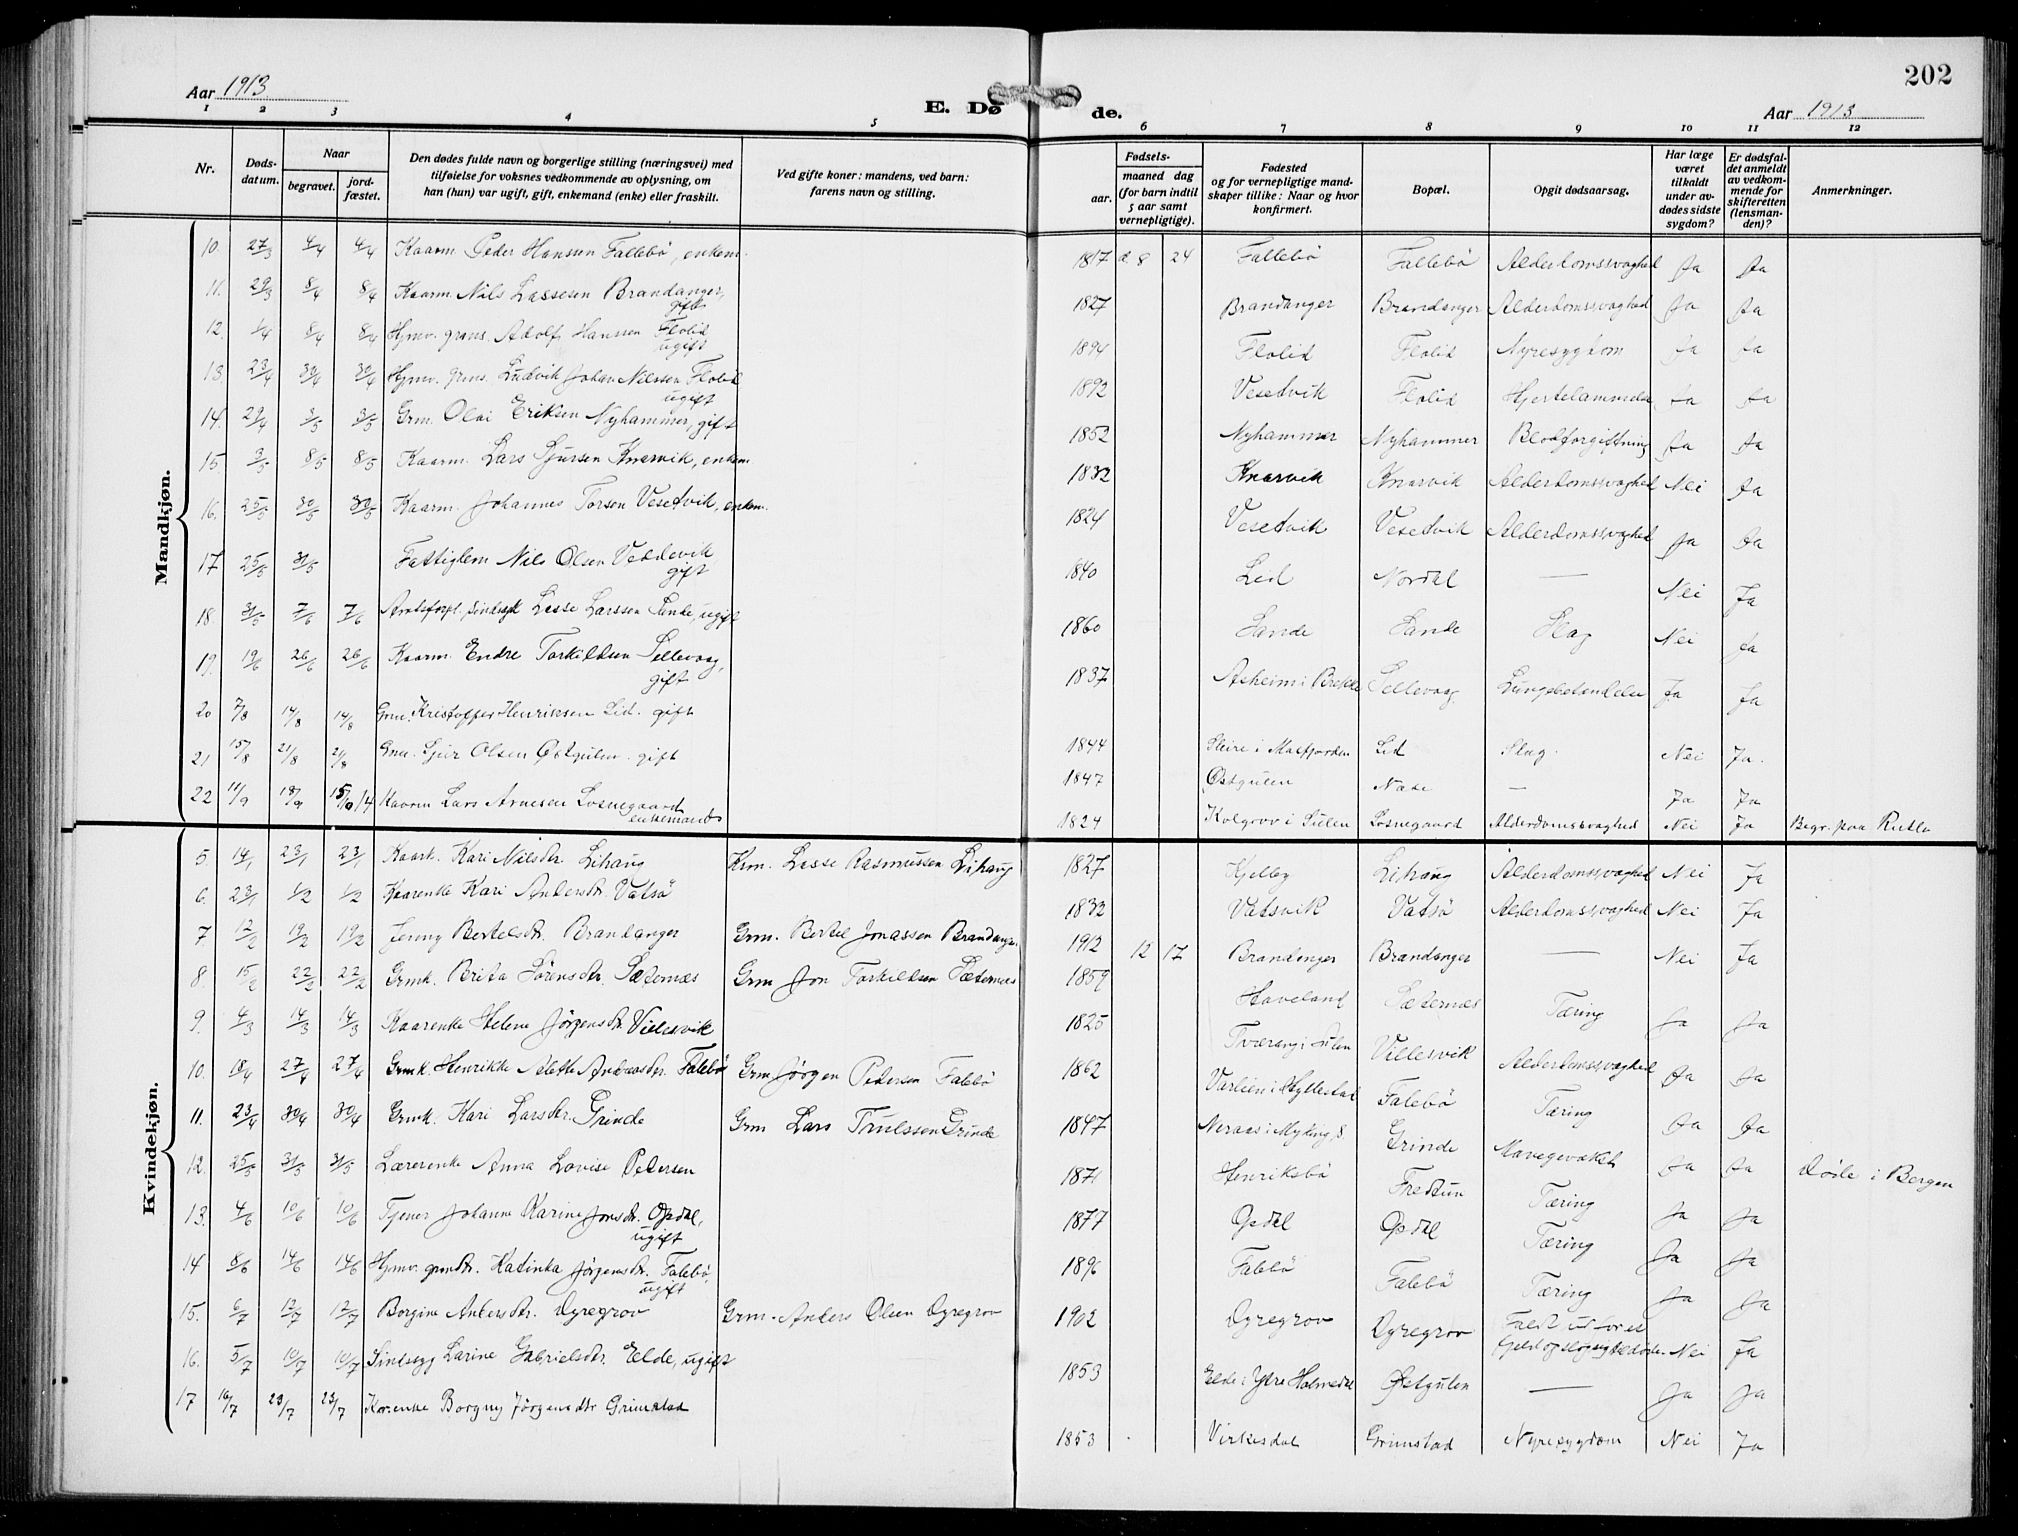 202
Aar 1913
E. Dø de.
Aar 1913
1 2 3 4 5 6 7 8 9 10 11 12
Nr.
Døds-datum.
Naar
begravet.
jord-fæstet.
Den dødes fulde navn og borgerlige stilling (næringsvei) med
tilføielse for voksnes vedkommende av oplysning, om
han (hun) var ugift, gift, enkemand (enke) eller fraskilt.
Ved gifte koner: mandens, ved barn:
farens navn og stilling.
Fødsels-
aar.
maaned dag
(for barn indtil
5 aar samt
vernepligtige).
Fødested
og for vernepligtige mand-
skaper tillike: Naar og hvor
konfirmert.
Bopæl.
Opgit dødsaarsag.
Har læge
været
tilkaldt
under av-
dødes sidste
sygdom?
Er dødsfal-
det anmeldt
av vedkom-
mende for
skifteretten
(lensman-
den)?
Anmerkninger.
Mandkjøn.
10. 27/3 4/4 4/4 Kaarm. Peder Hansen Fallebö, enkem. 1817 d. 8 24 Fallebö Fallebö Alderdomssvaghed Ja Ja
11. 29/3 8/4 8/4 Kaarm. Nils Lassesen Brandanger, gift 1827 Brandanger Brandanger Alderdomssvaghed Ja Ja
12. 1/4 8/4 8/4 Hjmv. grms. Adolf Hanssen Flolid ugift 1894 Flolid Flolid Nyresygdom Ja Ja
13. 23/4 30/4 30/4 Hjmv. grms. Ludvik Johan Nilssen Flolid ugift 1892 Vesetvik Flolid Hjertelammelse Ja Ja
14. 29/4 3/5 3/5 Grm. Olai Eriksen Nyhammer, gift 1852 Nyhammer Nyhammer Blodforgiftning Ja Ja
15. 3/5 8/5 8/5 Kaarm. Lars Sjursen Knarvik, enkem. 1832 Knarvik Knarvik Alderdomssvaghed Nei Ja
16. 25/5 30/5 30/5 Kaarm. Johannes Torsen Vesetvik, enkem. 1824 Vesetvik Vesetvik Alderdomssvaghed Ja Ja
17 25/5 31/5 Fattiglem Nils Olsen Veddevik gift 1840 Lid Nordal — Nei Ja
18. 31/5 7/6 7/6 Amtsforpl. sindssyk Lasse Larssen Sande, ugift 1860 Sande Sande Slag Nei Ja
19. 19/6 26/6 26/6 Kaarm. Endre Torkildsen Sellevaag, gift 1837 Asheim i Brekke Sellevaag. Lungebetendelse Ja Ja
20 7/8 14/8 14/8 Grm. Kristoffer Henriksen Lid. gift 1844 Sleire i Masfjorden Lid Slag. Nei Ja.
21 15/8 21/8 21/8 Grm. Sjur Olsen Östgulen. gift 1847 Östgulen Næse — Ja Ja
22 11/9 18/9 15/9 14 Kaarm Lars Arnesen Losnegaard enkemand 1824 Kolgrov i Sulen Losnegaard Alderdomssvaghed Nei Ja Begr. paa Rutle
Kvindekjøn.
5. 14/1 23/1 23/1 Kaark. Kari Nilsdtr. Lihaug Krm. Lasse Rasmussen Lihaug 1827 Kjelby Lihaug Alderdomssvaghed Nei Ja
6. 23/1 1/2 1/2 Kaarenke Kari Andersdtr. Vatsö 1832 Vatsvik Vatsö Alderdomssvaghed Nei Ja
7 12/2 19/2 19/2 Jenny Bertelsdtr. Brandanger Grm. Bertel Jonassen Brandanger 1912 12 17 Brandanger Brandanger — Nei Ja
8. 15/2 22/2 22/2 Grmk. Brita Sörensdtr. Sæternæs Grm Jon Torkildsen Sæternæs 1859 Haveland Sæternæs Tæring Ja Ja
9. 4/3 14/3 14/3 Kaarenke Helene Jörgensdtr. Villesvik 1825 Tværaag i Sulen Villesvik Alderdomssvaghed Ja Ja
10. 18/4 27/4 27/4 Grmk. Henrikke Alette Andreasdtr. Falebö Grm Jörgen Pedersen Falebö 1862 Varlien i Hyllestad Falebö Tæring Ja Ja
11. 23/4 30/4 30/4 Grmk. Kari Larsdtr. Grinde Grm Lars Trulssen Grinde 1847 Neraas i Myking, S. Grinde Mavegevækst Ja Ja
12. 25/5 31/5 31/5 Lærerenke Anna Lovise Petersen 1871 Henriksbö Fredtun Tæring Ja Ja Döde i Bergen
13. 4/6 10/6 10/6 Tjener Johanne Karine Jonsdtr. Opdal, ugift 1877 Opdal Opdal Tæring Ja Ja
14 8/6 14/6 14/6 Hjmv. grmdtr. Katinka Jörgensdtr. Falebö, ugift 1896 Falebö Falebö Tæring Ja Ja
15. 6/7 12/7 12/7 Borgine Andersdtr. Dyregrov Grm. Anders Olsen Dyregrov 1902 Dyregrov Dyregrov Faldt ud for et fjeld og slog sig til döde. Nei Ja
16. 5/7 10/7 10/7 Sindssyg Larine Gabrielsdtr. Elde, ugift 1853 Elde i Ytre Holmedal Östgulen — Ja Ja
17 16/7 23/7 23/7 Kor.enke Borgny Jörgensdtr Grimstad 1853 Virkesdal Grimstad Nyresygdom Nei Ja